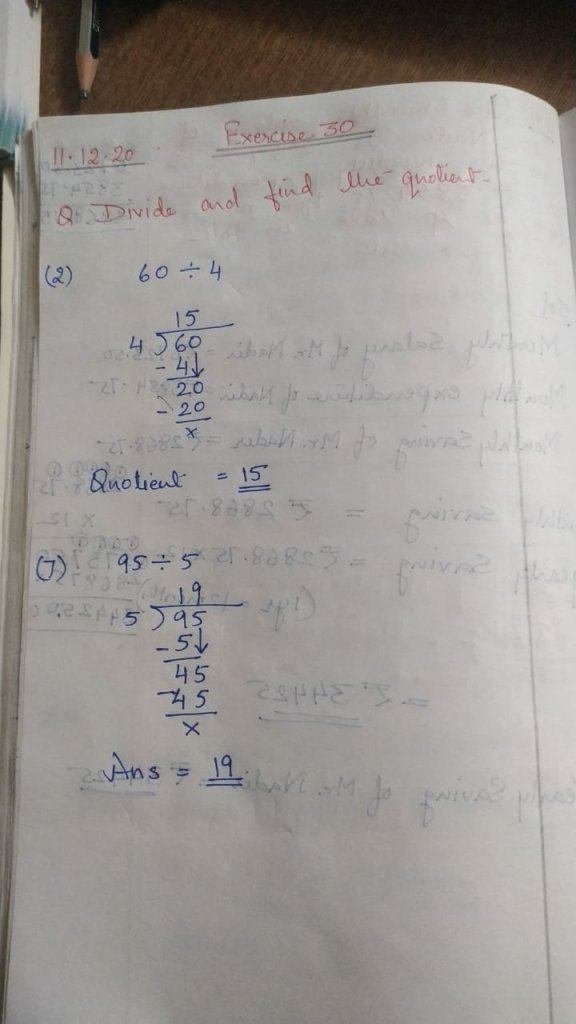 Exercise 30
11.12.20
Q Divide and find the quotient-
(2) 60 ÷ 4
15
4 ) 60
- 4↓
20
- 20
x
Quotient = 15
(7) 95 ÷ 5
19
5 ) 95
- 5↓
45
- 45
x
Ans = 19